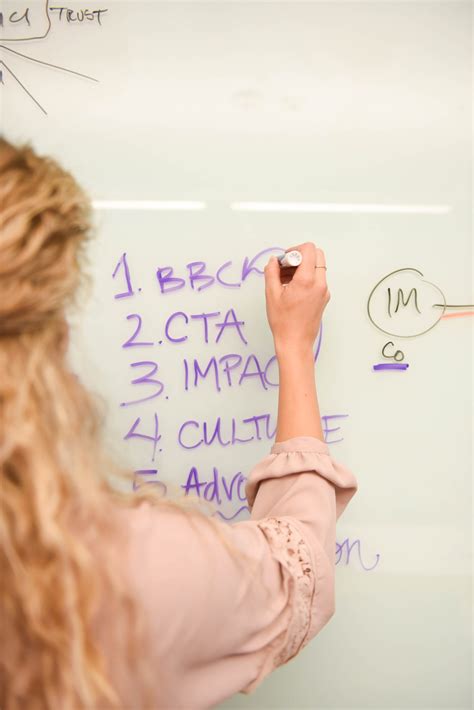 TRUST
1. BBCK
2. CTA
3. IMPAC
4. CULTURE
5 Advo
IM
Co